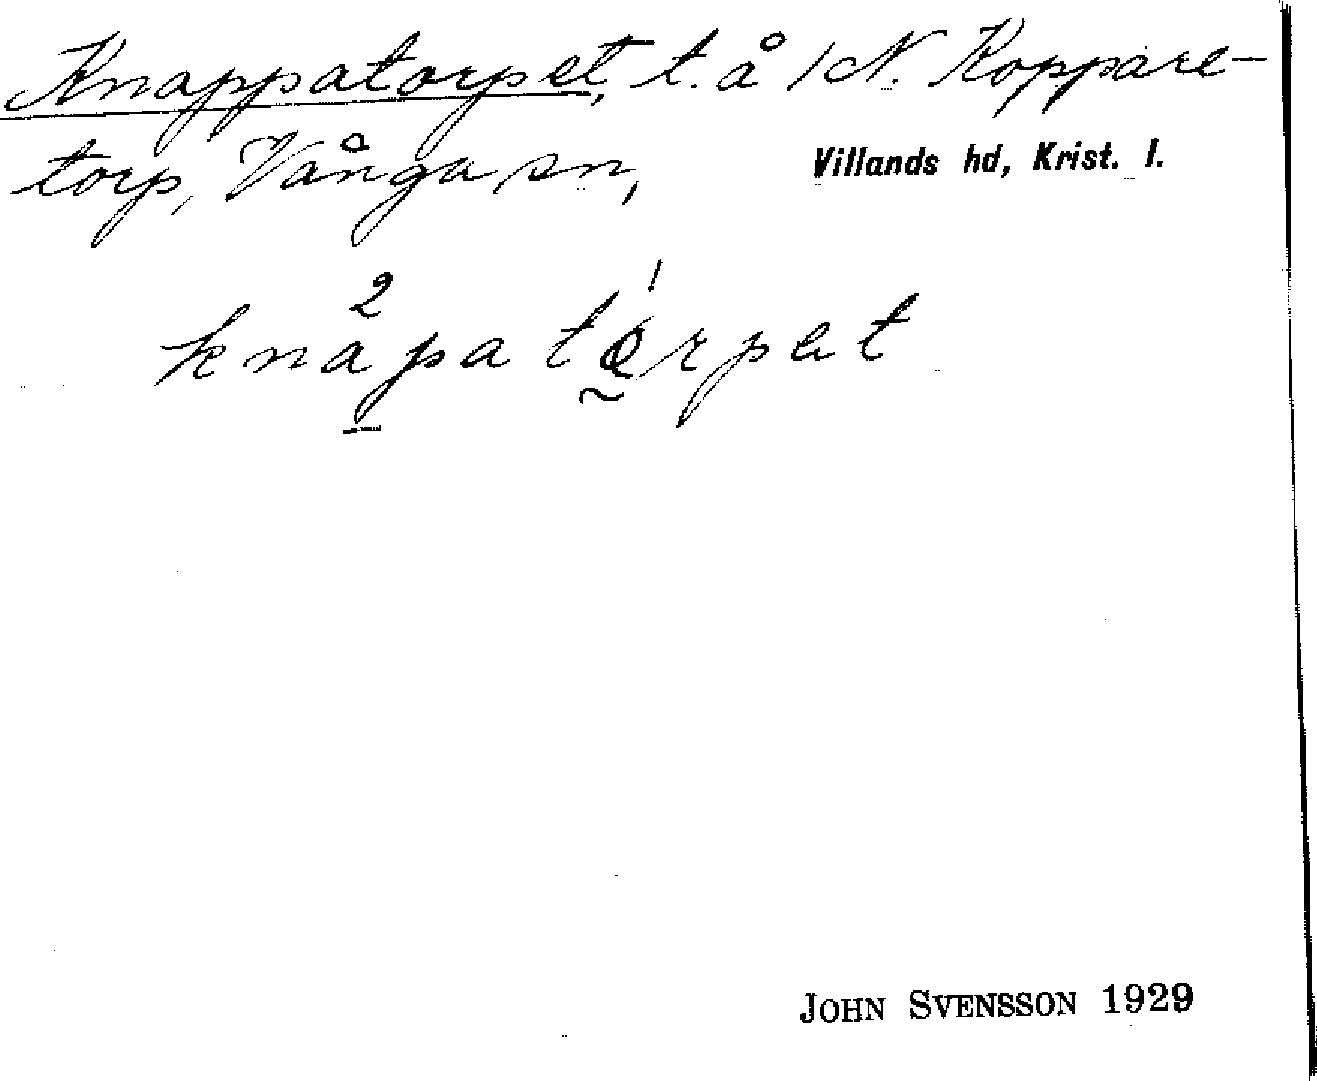 Knappatorpet, t. å 1 N. Koppare-
torp, Vånga sn, Villands hd, Krist. l.
knapatørpet
JOHN SVENSSON 1929